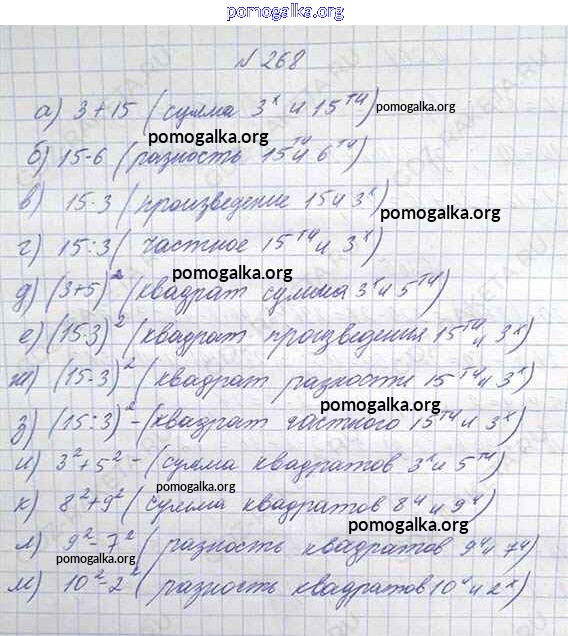 pomogalka.org
№ 268
а) 3+15 (сумма 3ˣ и 15ᵀᴵᴵ) pomogalka.org
pomogalka.org
б) 15-6 (разность 15ᵀᴵᴵ и 6ᵀᴵᴵ)
в) 15·3 (произведение 15 и 3ˣ)
pomogalka.org
г) 15:3 (частное 15ᵀᴵᴵ и 3ˣ)
pomogalka.org
д) (3+5)² (квадрат сумма 3ˣ и 5ᵀᴵᴵ)
е) (15·3)² (квадрат произведения 15ᵀᴵᴵ и 3ˣ)
pomogalka.org
ж) (15-3)² (квадрат разности 15ᵀᴵᴵ и 3ˣ)
pomogalka.org
з) (15:3)² - (квадрат частного 15ᵀᴵᴵ и 3ˣ)
и) 3²+5² - (сумма квадратов 3ˣ и 5ᵀᴵᴵ)
pomogalka.org
к) 8²+9² (сумма квадратов 8ᴵᴵ и 9ᴵᴵ)
pomogalka.org
л) 9²-7² (разность квадратов 9ᴵᴵ и 7ᴵᴵ)
pomogalka.org
м) 10²-2² (разность квадратов 10ᴵᴵ и 2ˣ)
pomogalka.org